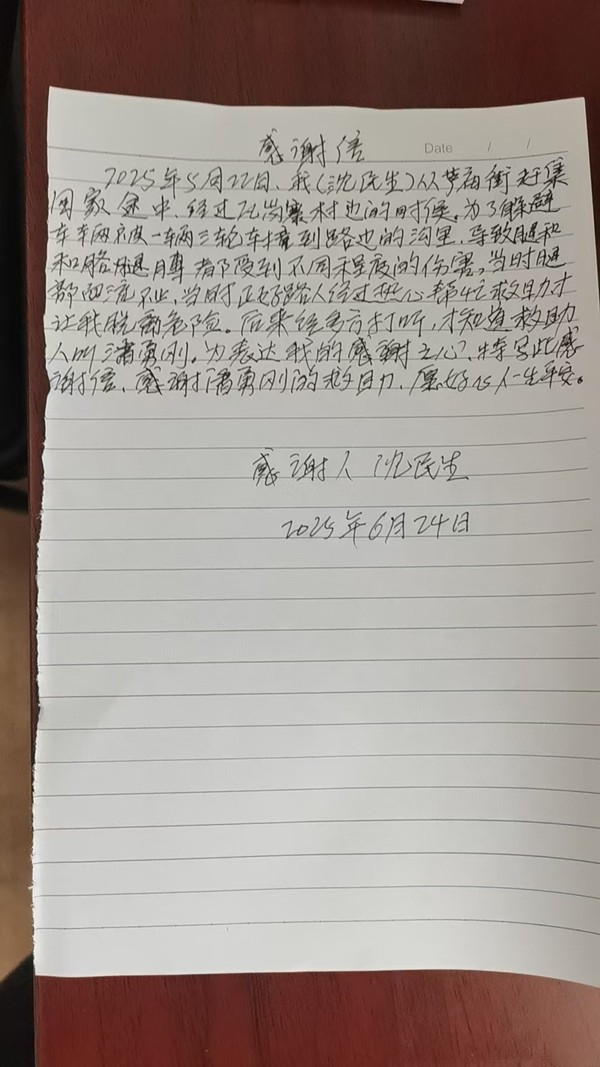 感谢信
Date / /
2025年5月22日，我（沈民生）从芦庙街赶集
回家途中，经过孔岗寨村边的时候，为了躲避
车辆被一辆三轮车撞到路边的沟里，导致腿和
和胳膊都受到不同程度的伤害。当时腿
部血流不止，当时正好路人经过热心帮忙救助才
让我脱离危险。后来经多方打听，才知道救助
人叫潘勇刚。为表达我的感谢之心，特写此感
谢信，感谢潘勇刚的救助，愿好心人一生平安。
感谢人 沈民生
2025年6月24日